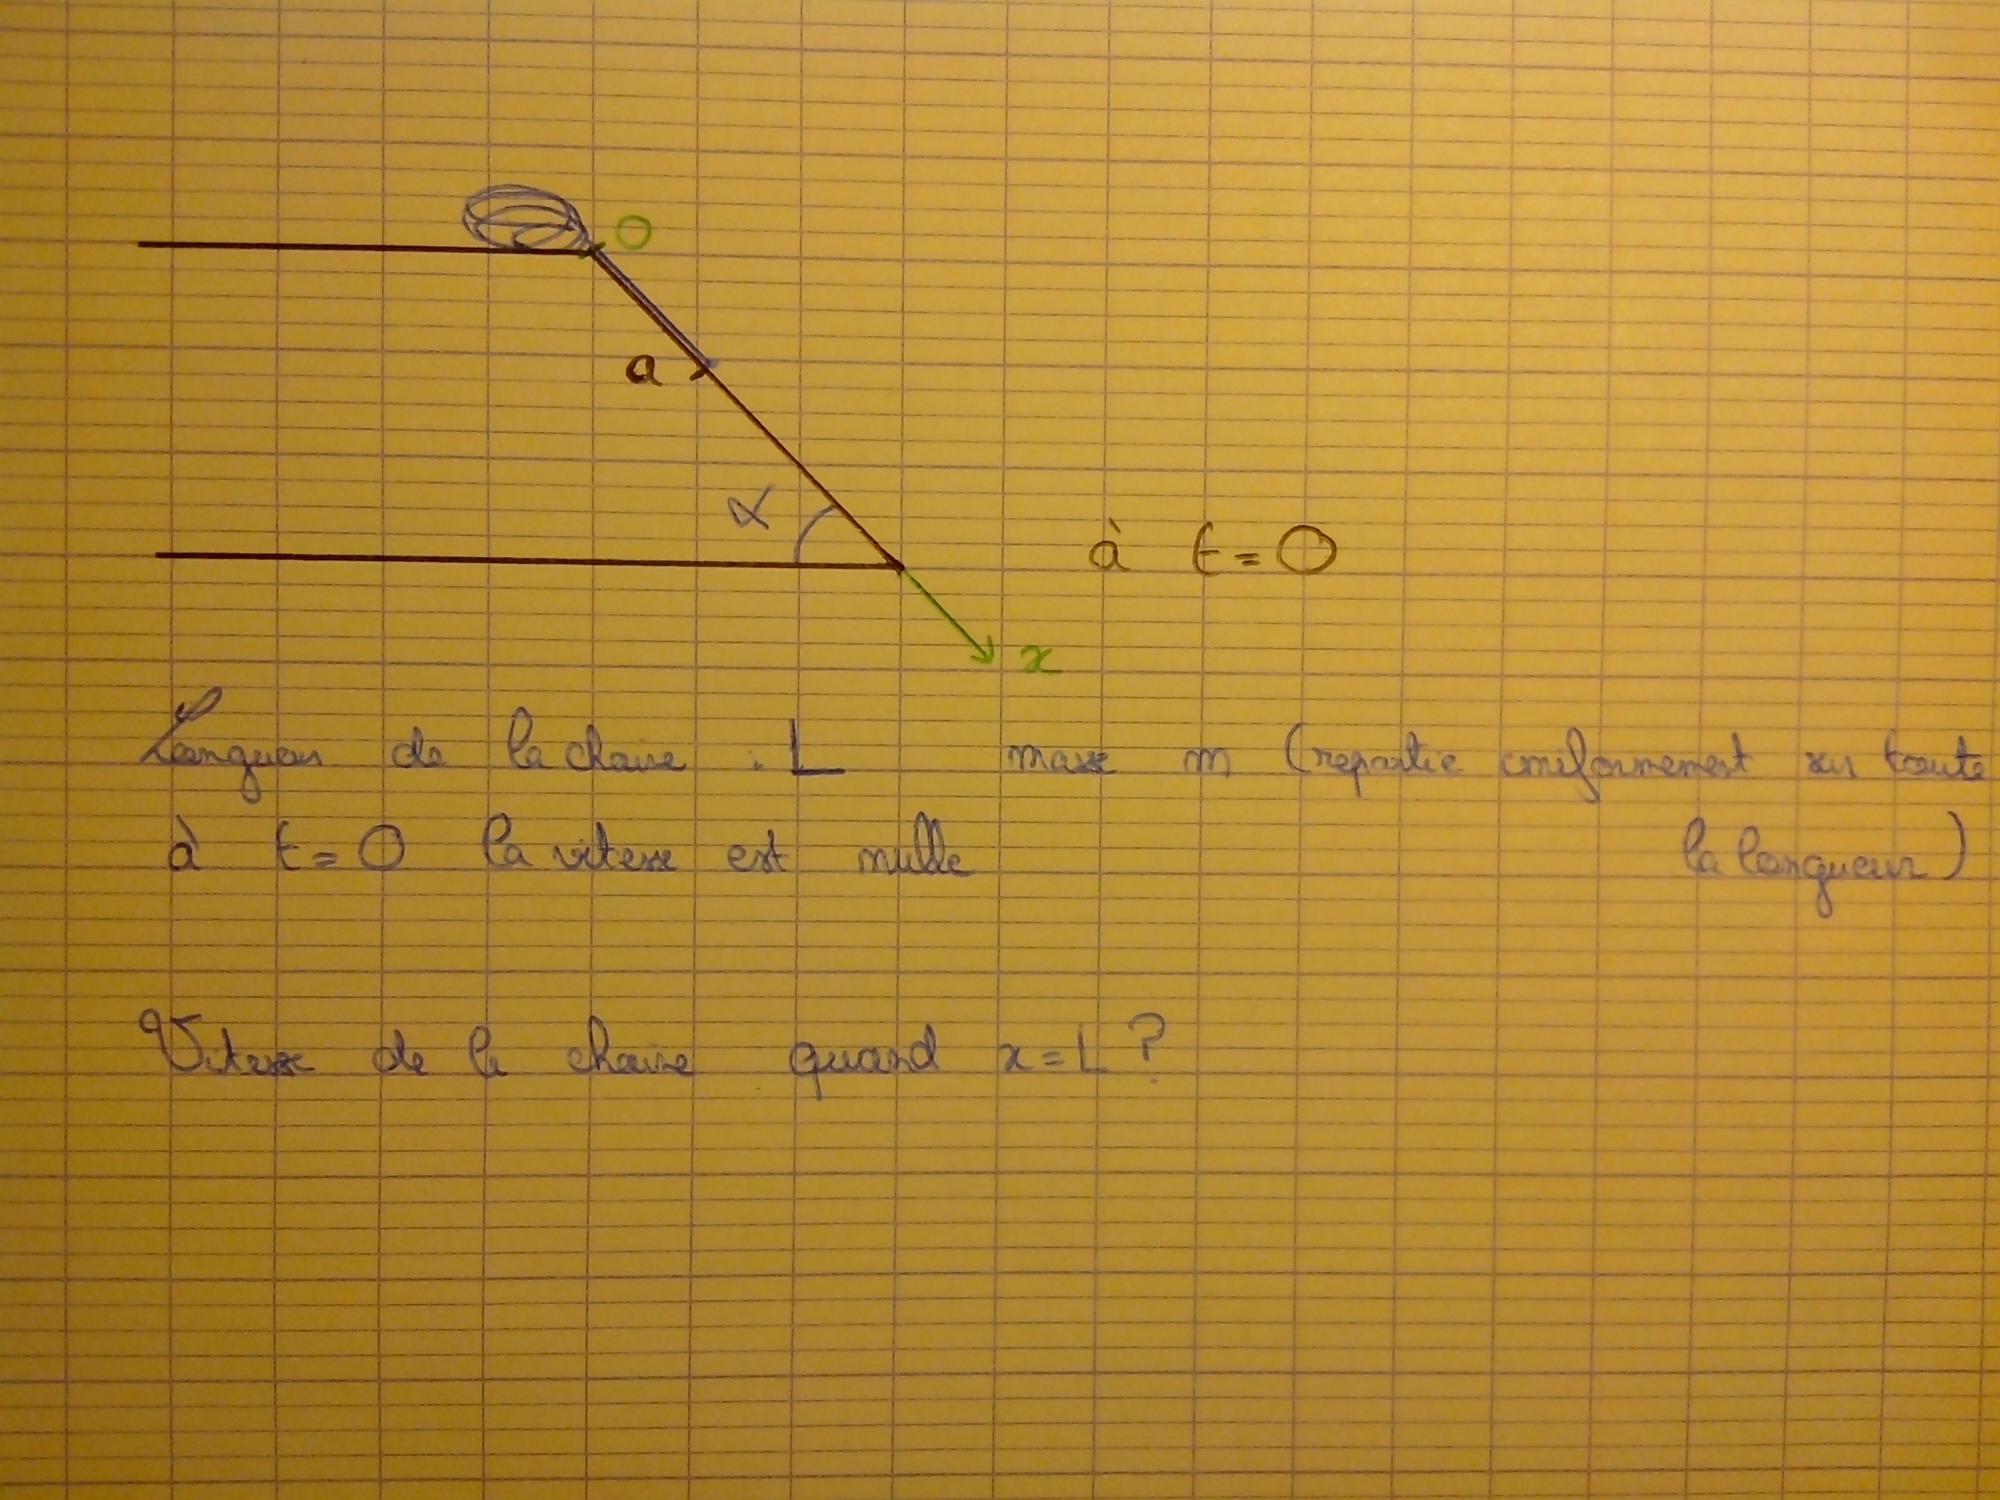 O
a
α
à t = 0
x
Longueur de la chaine : L masse m (repartie uniformement sur toute
la longueur)
à t = 0 la vitesse est nulle
Vitesse de la chaine quand x = L ?